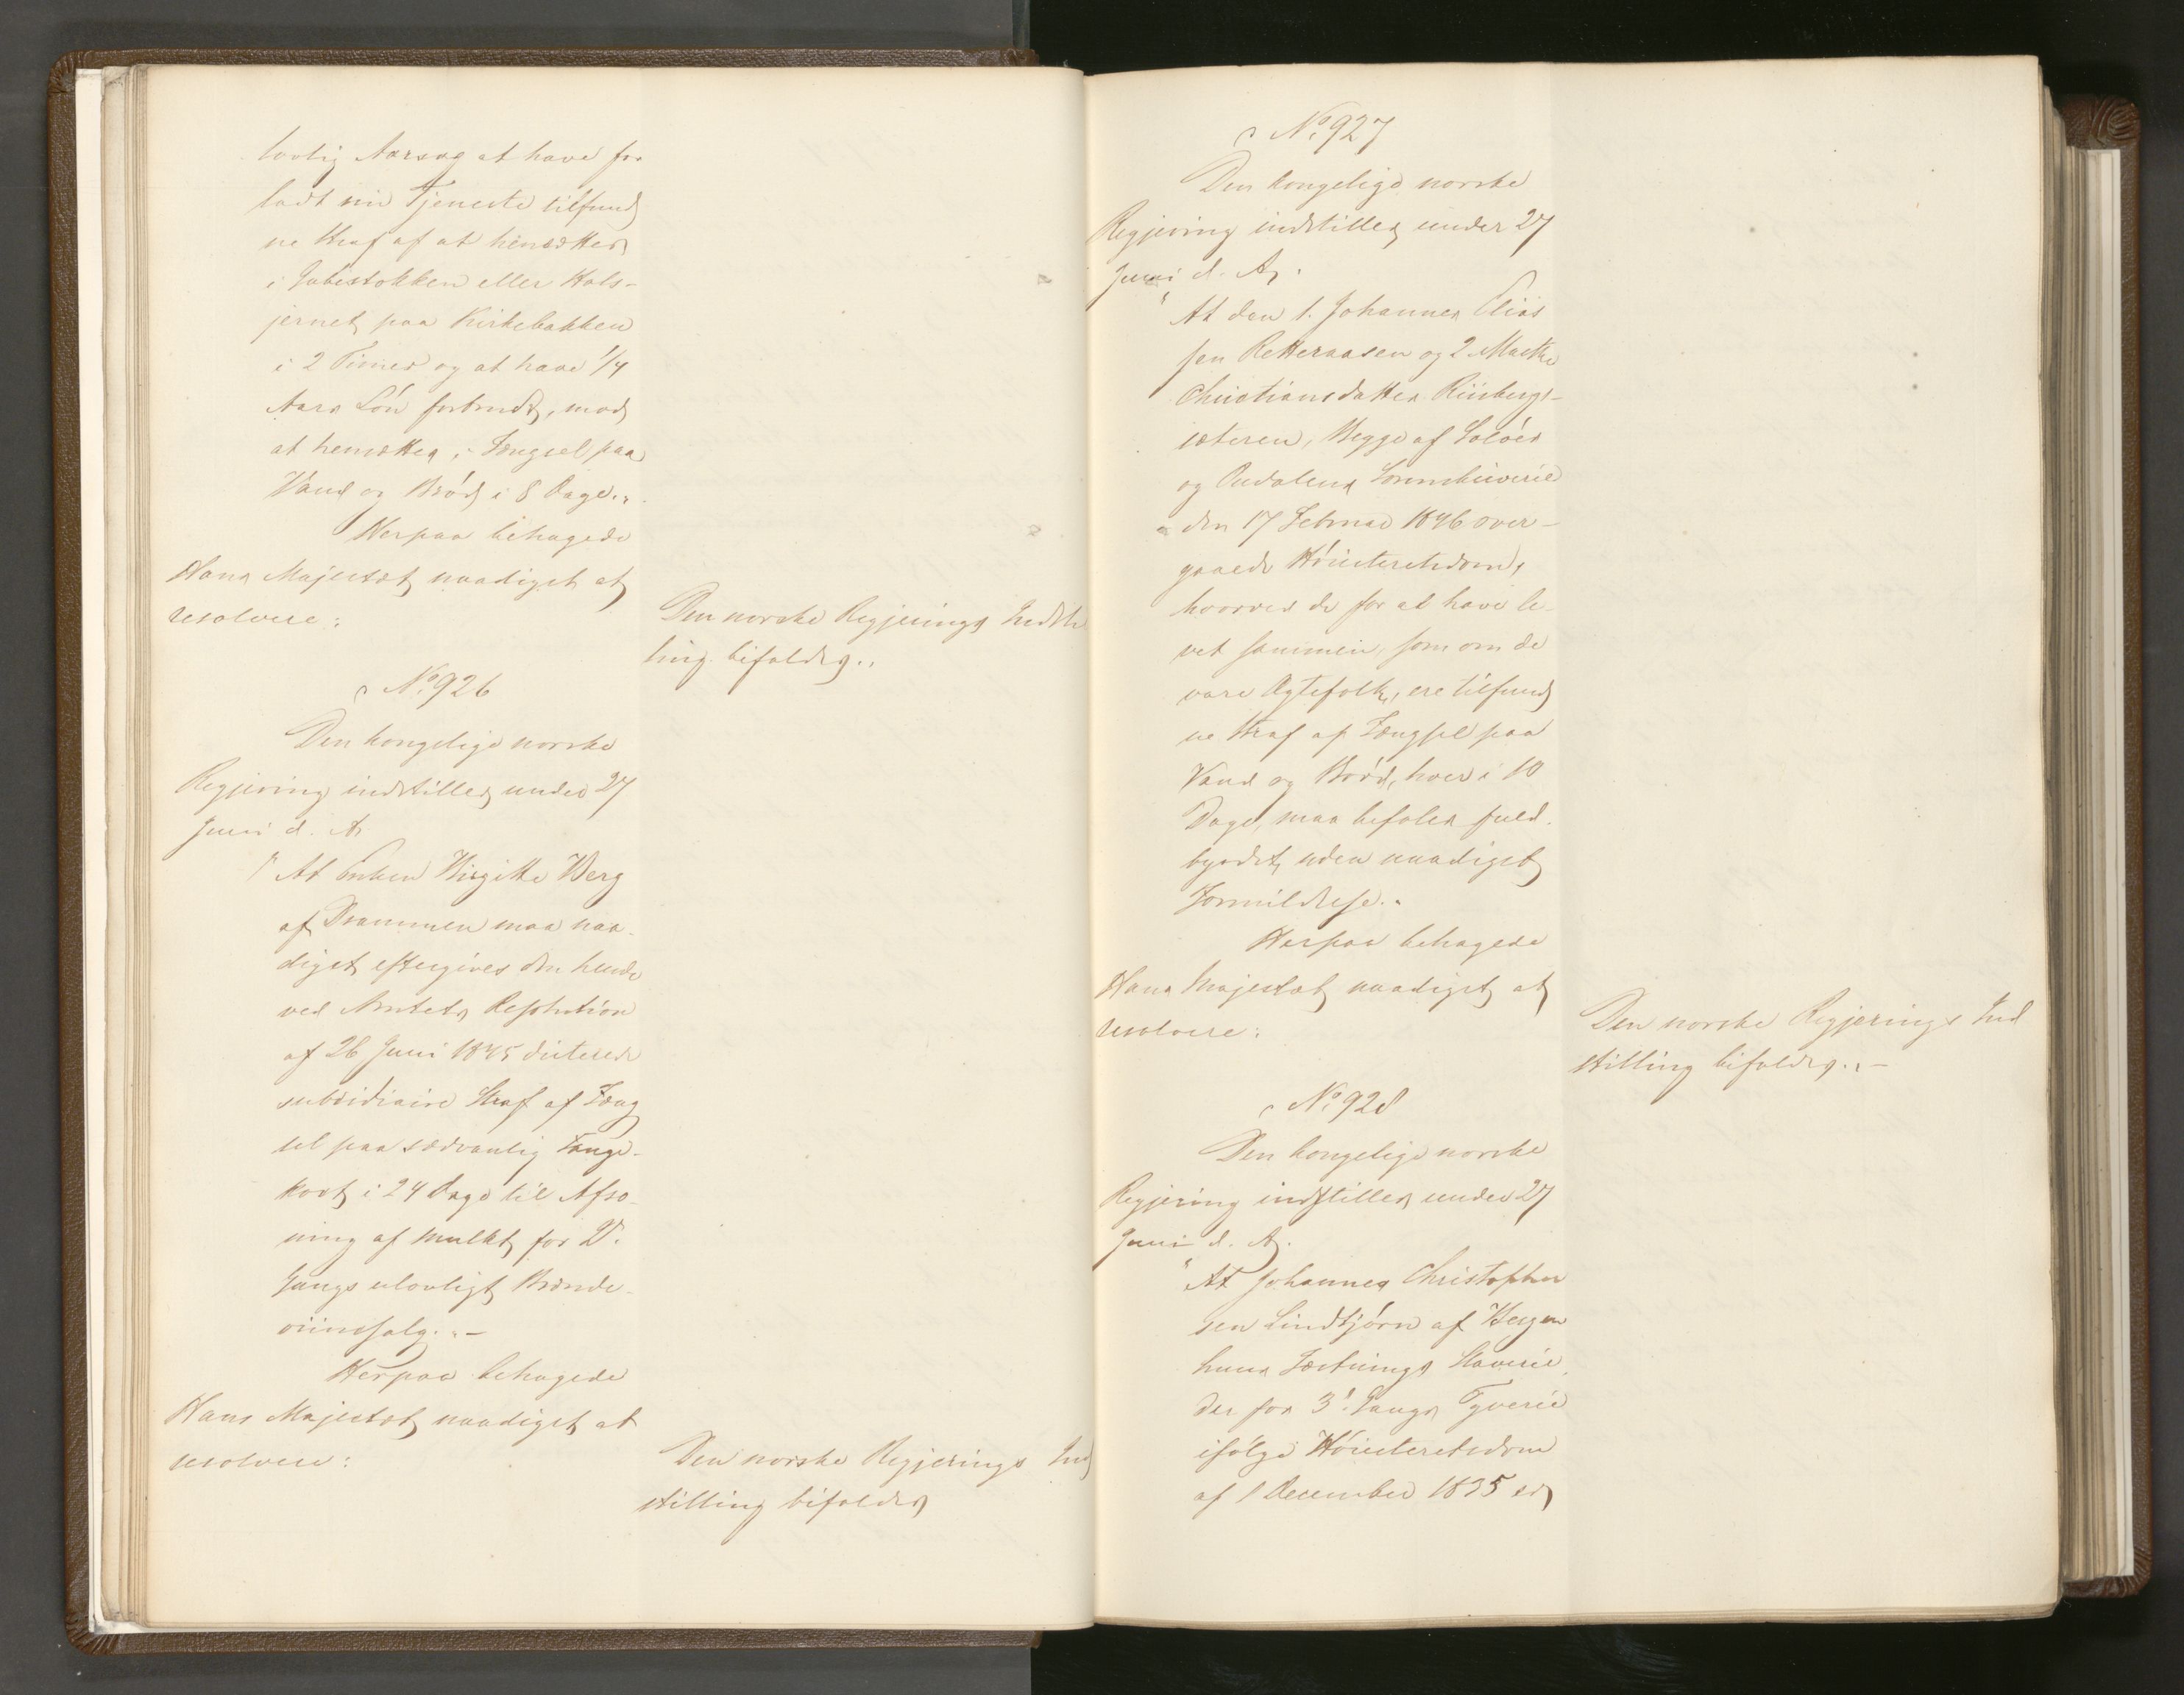 lovlig Aarsag at have for
ladt sin Tjeneste tilfund
ne Straf af at hensættes
i Gabestokken eller Hals-
jernet paa Kirkebakken
i 2 Timer og at have 1/4
Aars Lön forbrudt, mod
at hensættes i Fængsel paa
Vand og Bröd i 8 Dage."
Herpaa behagede
Hans Majestæt naadigst at
resolvere:
Den norske Regjerings Indstil
ling bifaldes."
No 926
Den kongelige norske
Regjering indstiller under 27
Juni d. A.
"At Enken Birgitte Berg
af Drammen maa naa-
digst eftergives den hende
ved Amtets Resolution
af 26 Juni 1845 dicterede
subsidiaire Straf af Fæng
sel paa sædvanlig Fange-
kost i 24 Dage til Afso-
ning af Mulkt for 2den
Gangs ulovligt Brænde-
viinssalg."-
Herpaa behagede
Hans Majestæt naadigst at
resolvere:
Den norske Regjerings Ind
stilling bifaldes
No 927
Den kongelige norske
Regjering indstiller under 27
Juni d. A.
"At den 1. Johannes Elias
sen Retteraasen og 2 Marthe
Christiansdatter Riisbergs-
sæteren, Begge af Soløer
og Oudalens Sorenskriverie
den 17 Februar 1846 over-
gaaede Höiesteretsdom,
hvorved de for at have le-
vet sammen, som om de
vare Ægtefolk, ere tilfund
ne Straf af Fængsel paa
Vand og Bröd, hver i 10
Dage, maa befales fuld-
byrdet uden naadigst
Formildelse."
Herpaa behagede
Hans Majestæt naadigst at
resolvere:
Den norske Regjerings Ind
stilling bifaldes."-
No 928
Den kongelige norske
Regjering indstiller under 27
Juni d. A.
"At Johannes Christopher
sen Lindtjörn af Bergen
huus Fæstnings Slaverie,
der for 3die Gangs Tyverie
ifölge Höiesteretsdom
af 1 December 1835 er